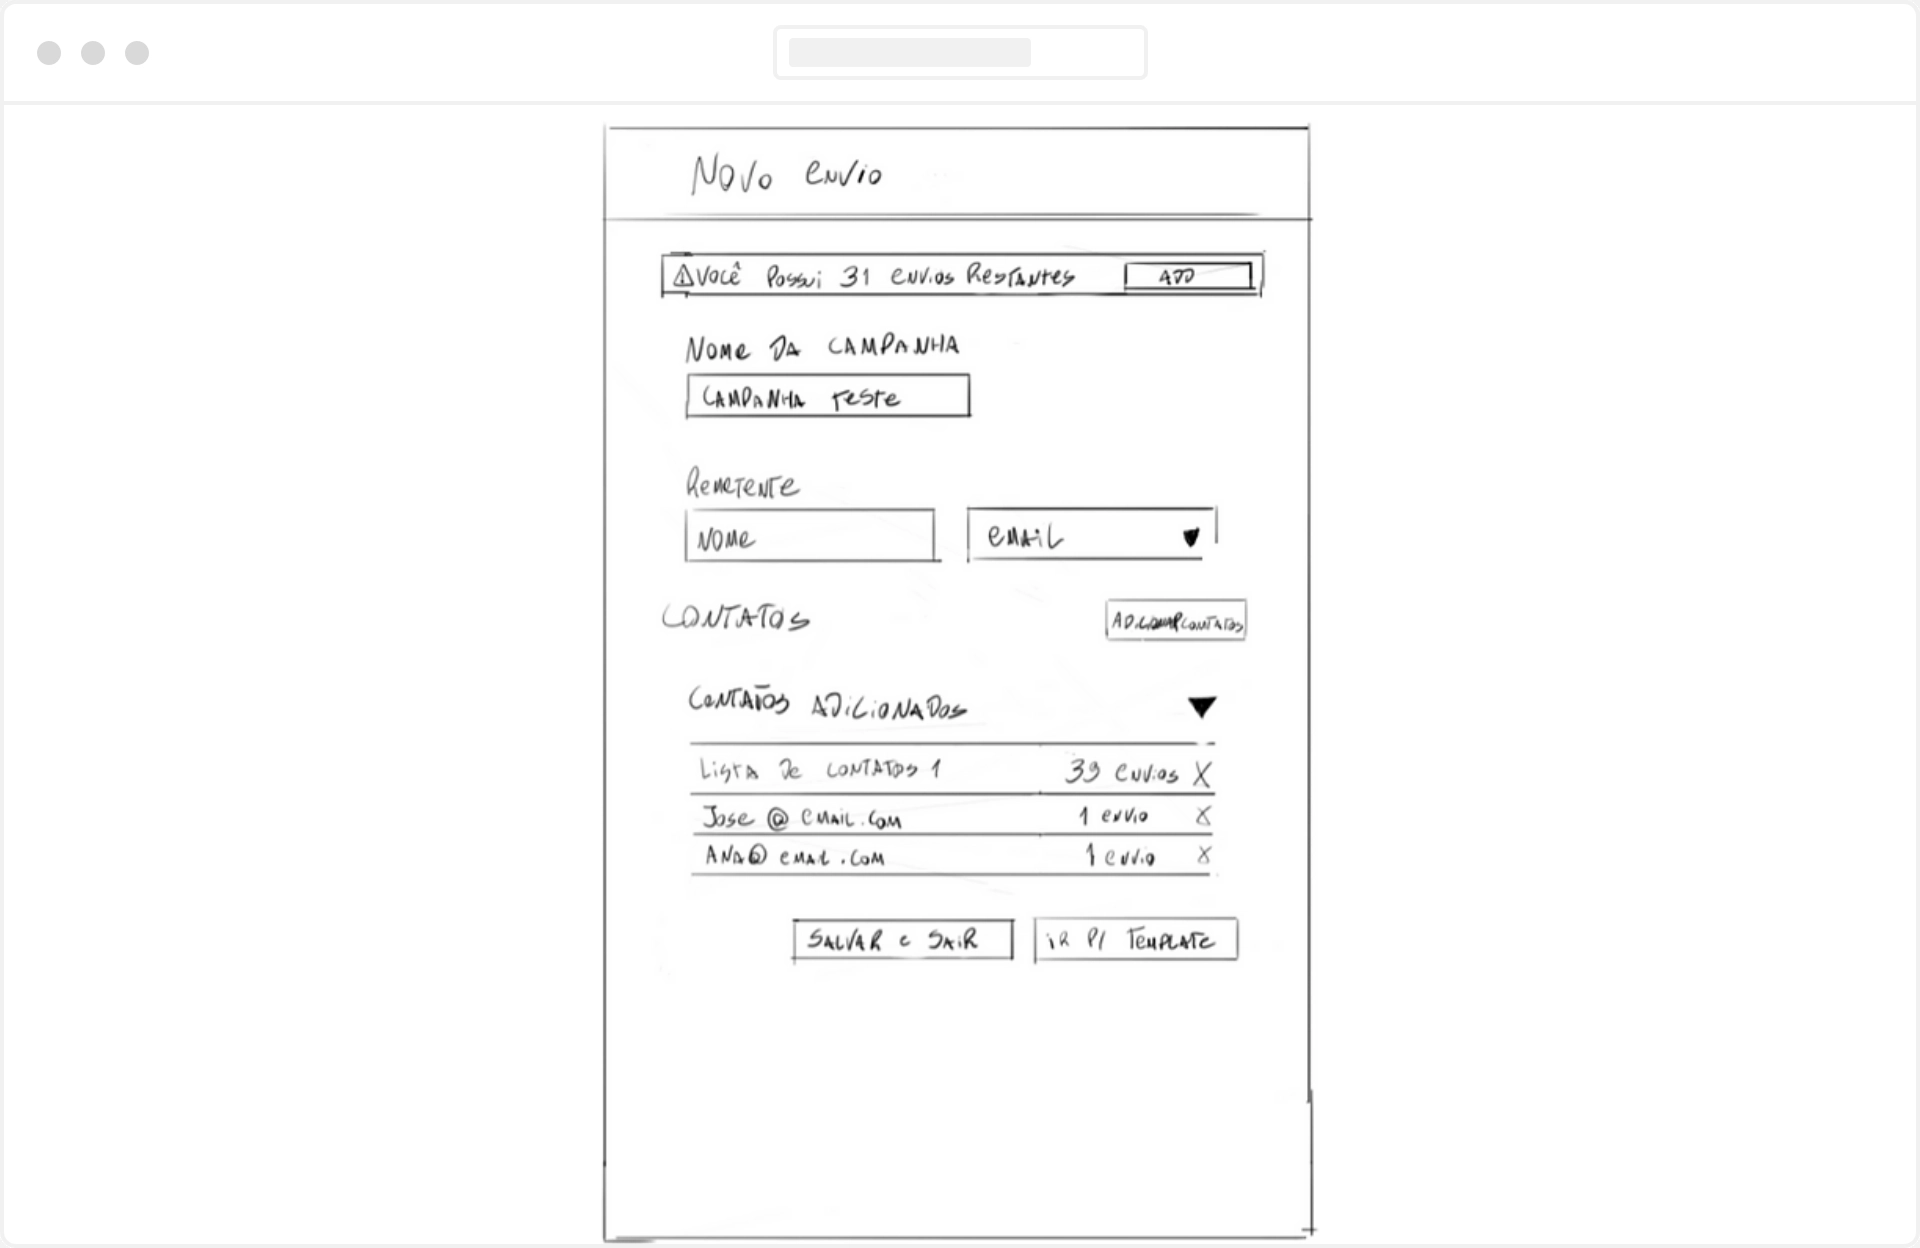 Novo envio
Você possui 31 envios restantes ADD
Nome da campanha
campanha teste
Remetente
Nome email
Contatos Adicionar contatos
Contatos adicionados
Lista de contatos 1 39 envios X
Jose@email.com 1 envio X
Ana@email.com 1 envio X
Salvar e sair ir p/ template